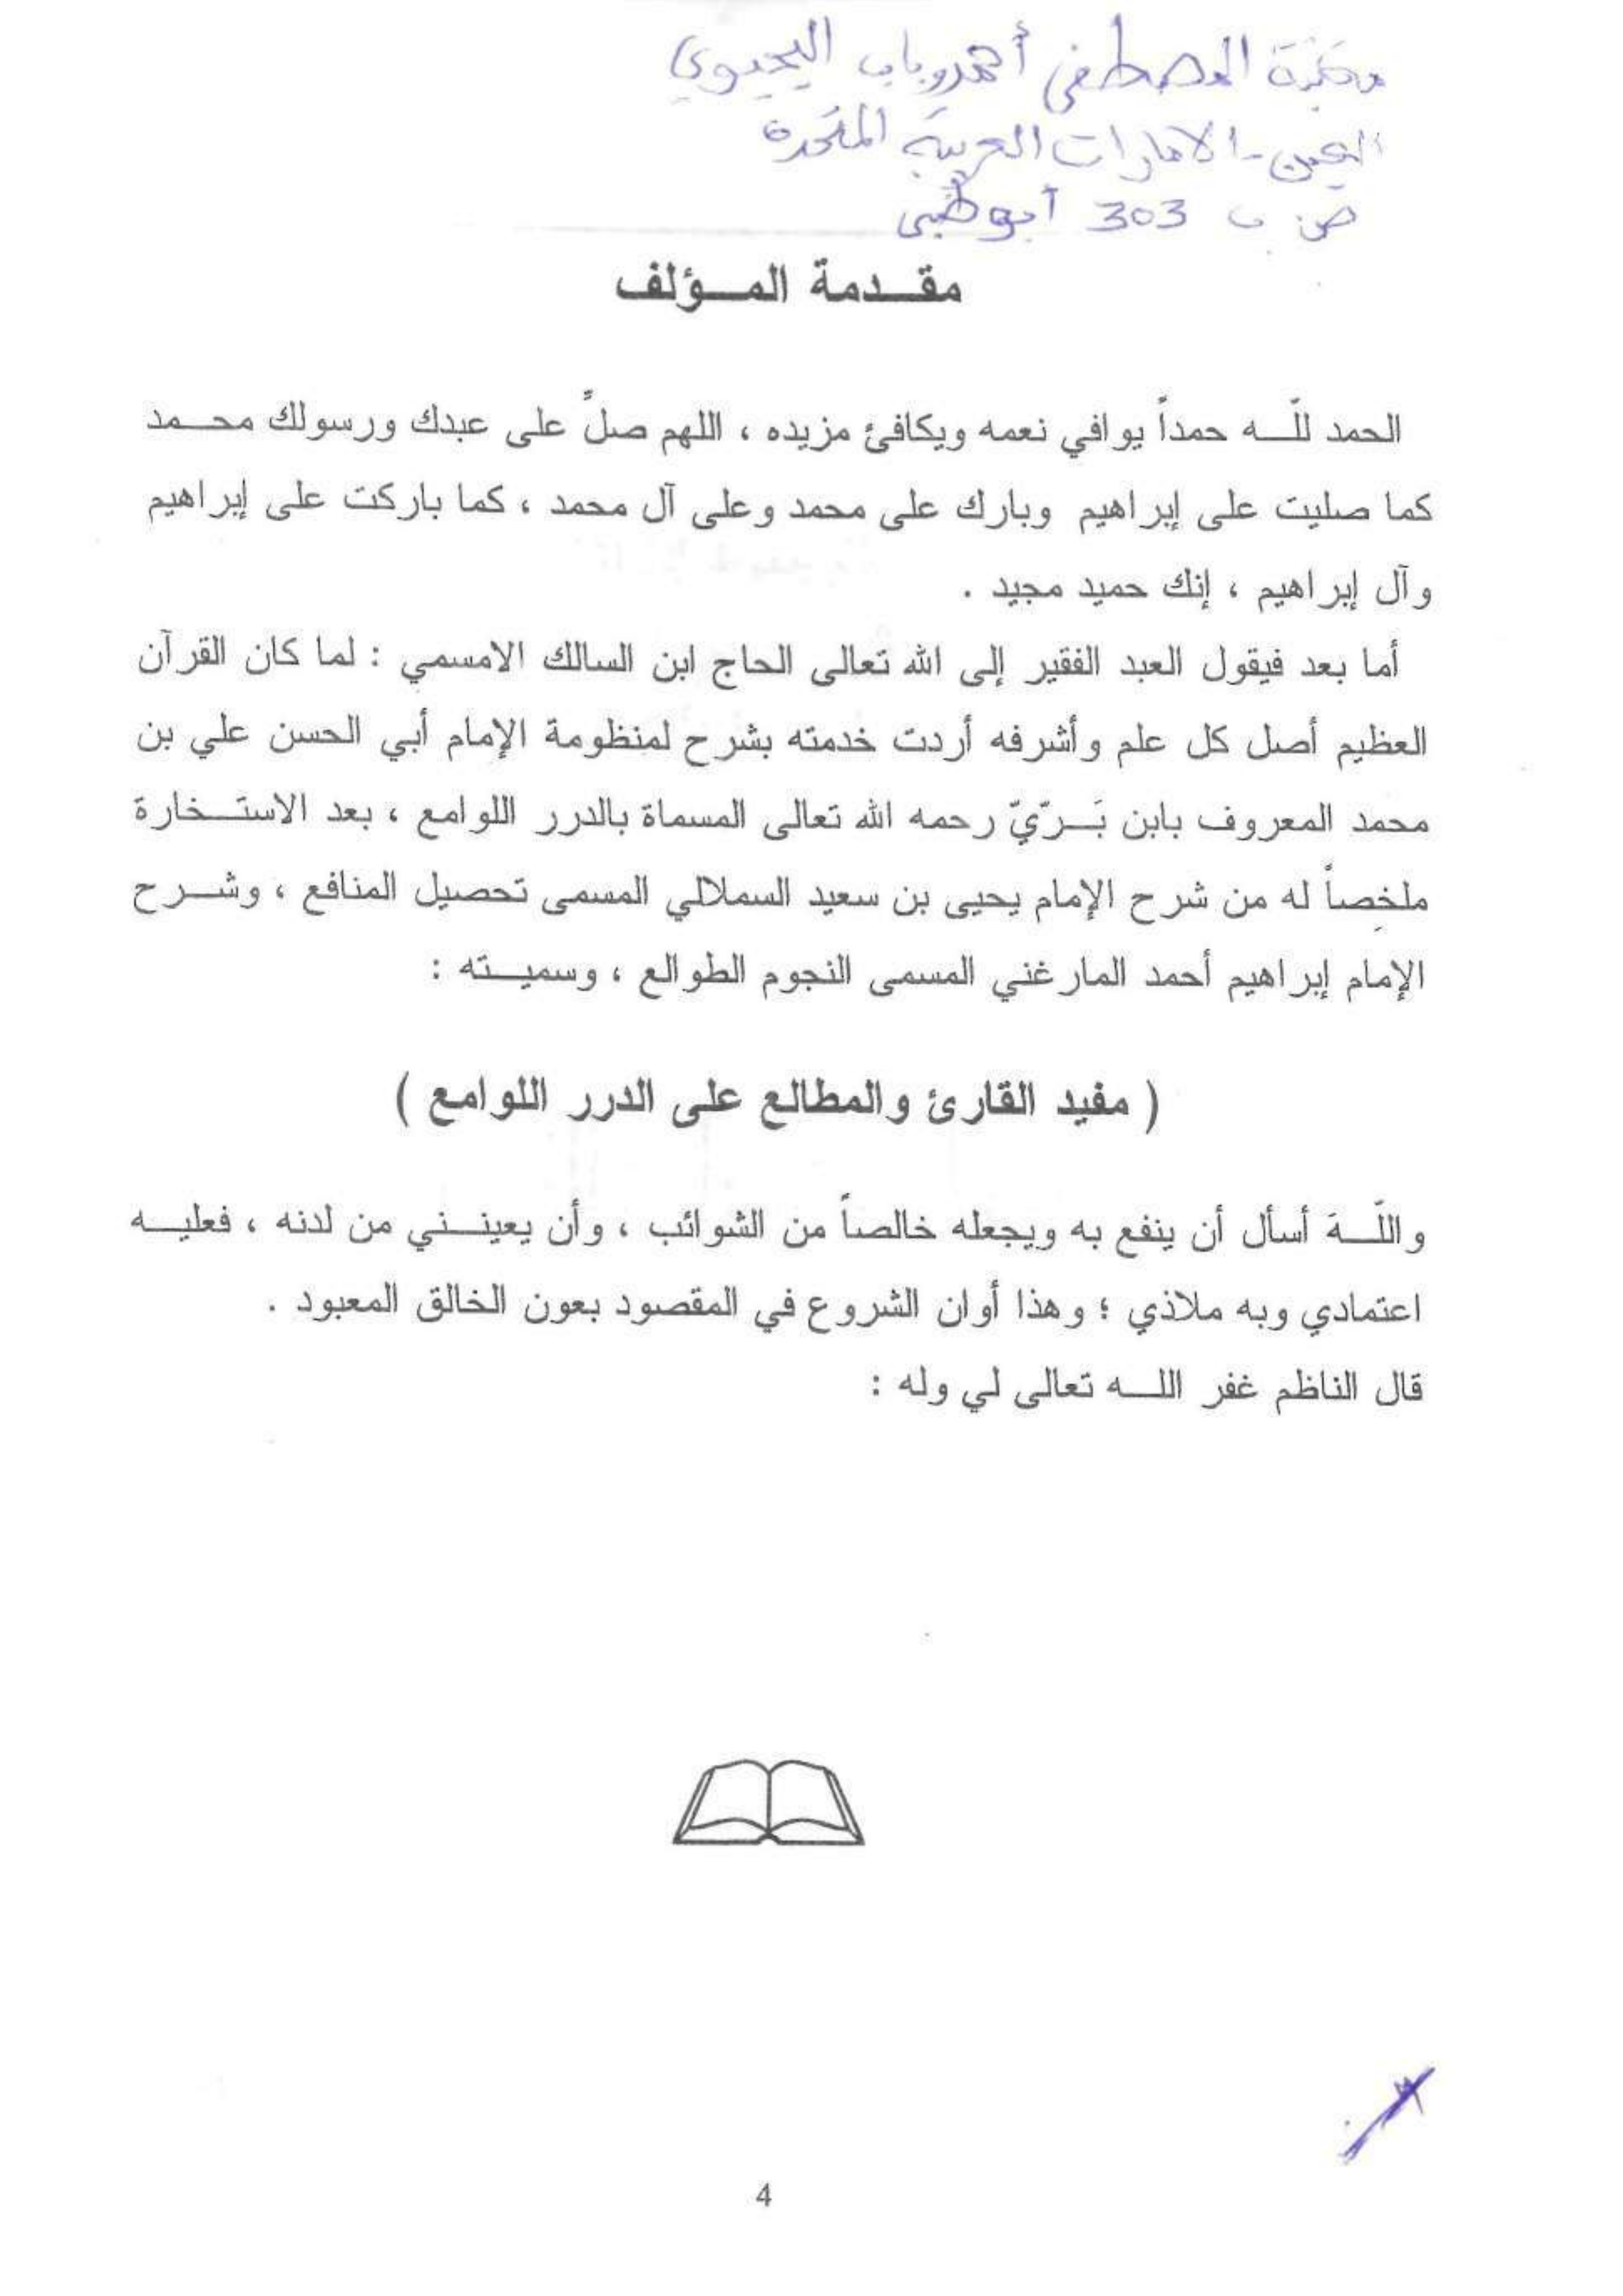 مكتبة المصطفى أحمدوباب اليحيوي
العين - الامارات العربية المتحدة
ص ب 303 أبوظبي
مقدمة المؤلف
الحمد للّه حمداً يوافي نعمه ويكافئ مزيده ، اللهم صلّ على عبدك ورسولك محمد
كما صليت على إبراهيم وبارك على محمد وعلى آل محمد ، كما باركت على إبراهيم
وآل إبراهيم ، إنك حميد مجيد .
أما بعد فيقول العبد الفقير إلى الله تعالى الحاج ابن السالك الامسمي : لما كان القرآن
العظيم أصل كل علم وأشرفه أردت خدمته بشرح لمنظومة الإمام أبي الحسن علي بن
محمد المعروف بابن بَرّيّ رحمه الله تعالى المسماة بالدرر اللوامع ، بعد الاستخارة
ملخصاً له من شرح الإمام يحيى بن سعيد السملالي المسمى تحصيل المنافع ، وشرح
الإمام إبراهيم أحمد المارغني المسمى النجوم الطوالع ، وسميته :
( مفيد القارئ والمطالع على الدرر اللوامع )
واللّهَ أسأل أن ينفع به ويجعله خالصاً من الشوائب ، وأن يعينني من لدنه ، فعليه
اعتمادي وبه ملاذي ؛ وهذا أوان الشروع في المقصود بعون الخالق المعبود .
قال الناظم غفر الله تعالى لي وله :
4